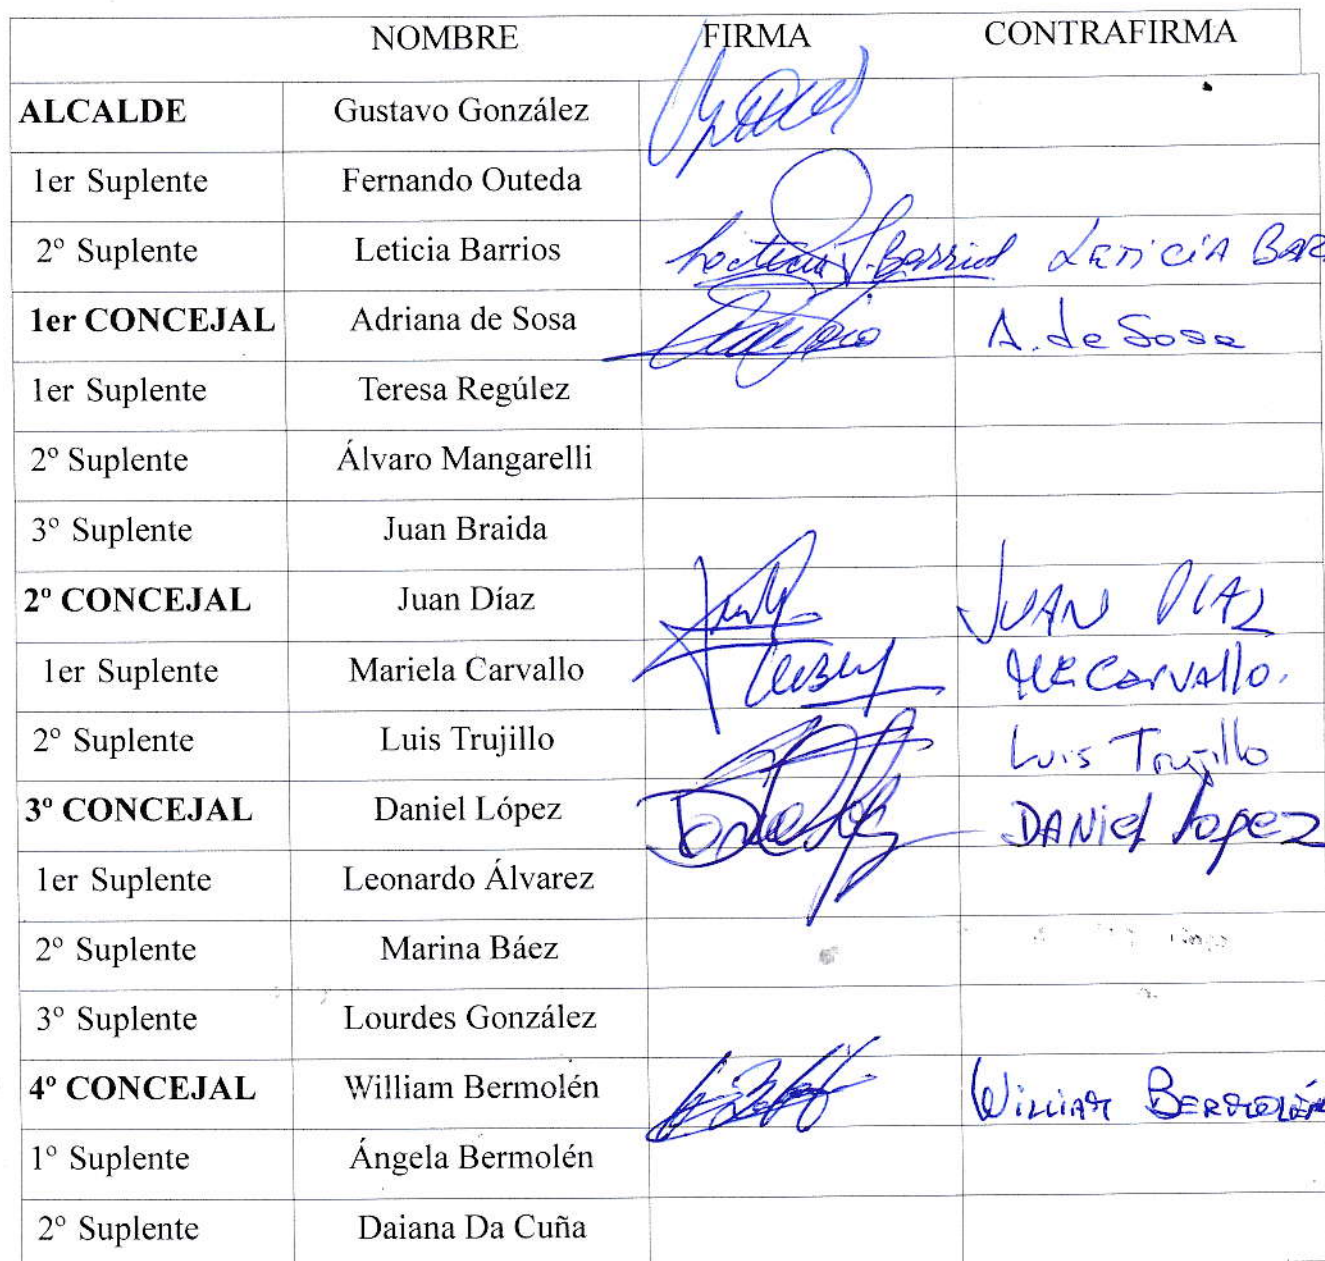 NOMBRE FIRMA CONTRAFIRMA
ALCALDE Gustavo González
1er Suplente Fernando Outeda
2º Suplente Leticia Barrios LETICIA BAR
1er CONCEJAL Adriana de Sosa A. de Sosa
1er Suplente Teresa Regúlez
2º Suplente Álvaro Mangarelli
3º Suplente Juan Braida
2º CONCEJAL Juan Díaz JUAN DIAZ
1er Suplente Mariela Carvallo Carvallo.
2º Suplente Luis Trujillo Luis Trujillo
3º CONCEJAL Daniel López DANiel Lopez
1er Suplente Leonardo Álvarez
2º Suplente Marina Báez
3º Suplente Lourdes González
4º CONCEJAL William Bermolén William BERMOLÉN
1º Suplente Ángela Bermolén
2º Suplente Daiana Da Cuña